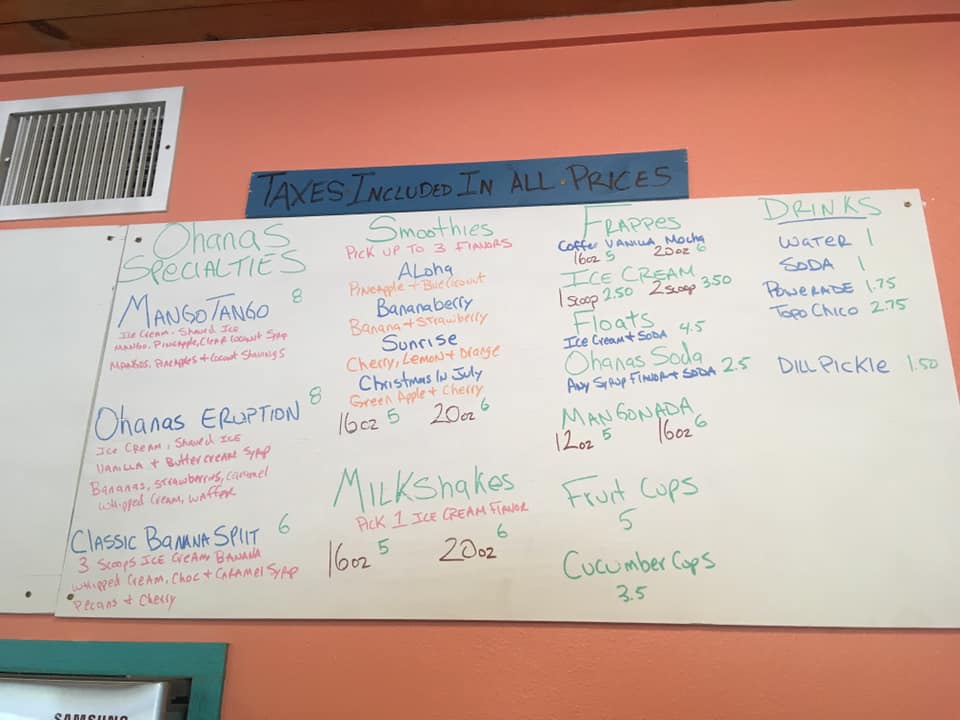 TAXES INCLUDED IN ALL PRICES
Ohanas
SPECIALTIES
MANGO TANGO 8
ICE CREAM - SHAVED ICE
MANGO, PINEAPPLE, CLEAR COCONUT SYRUP
MANGOS, PINEAPPLES + COCONUT SHAVINGS
Ohanas ERUPTION 8
ICE CREAM, SHAVED ICE
VANILLA + BUTTERCREAM SYRUP
BANANAS, STRAWBERRIES, CARAMEL
WHIPPED CREAM, WAFFER
CLASSIC BANANA SPLIT 6
3 SCOOPS ICE CREAM, BANANA
WHIPPED CREAM, CHOC + CARAMEL SYRUP
PECANS + CHERRY
Smoothies
PICK UP TO 3 FLAVORS
ALoha
PINEAPPLE + BLUE COCONUT
Bananaberry
Banana + Strawberry
SUNRISE
Cherry, LEMON + ORANGE
Christmas In July
Green Apple + Cherry
16oz 5 20oz 6
MILKShakes
PICK 1 ICE CREAM FLAVOR
16oz 5 20oz 6
FRAPPES
Coffee VANILLA Mocha
16oz 5 20oz 6
ICE CREAM
1 scoop 2.50 2 scoop 3.50
Floats 4.5
ICE CREAM + SODA
Ohanas Soda 2.5
ANY SYRUP FLAVOR + SODA
MANGONADA
12oz 5 16oz 6
Fruit Cups
5
Cucumber Cups
3.5
DRINKS
WATER 1
SODA 1
POWERADE 1.75
TOPO CHICO 2.75
DILL PICKLE 1.50
SAMSUNG